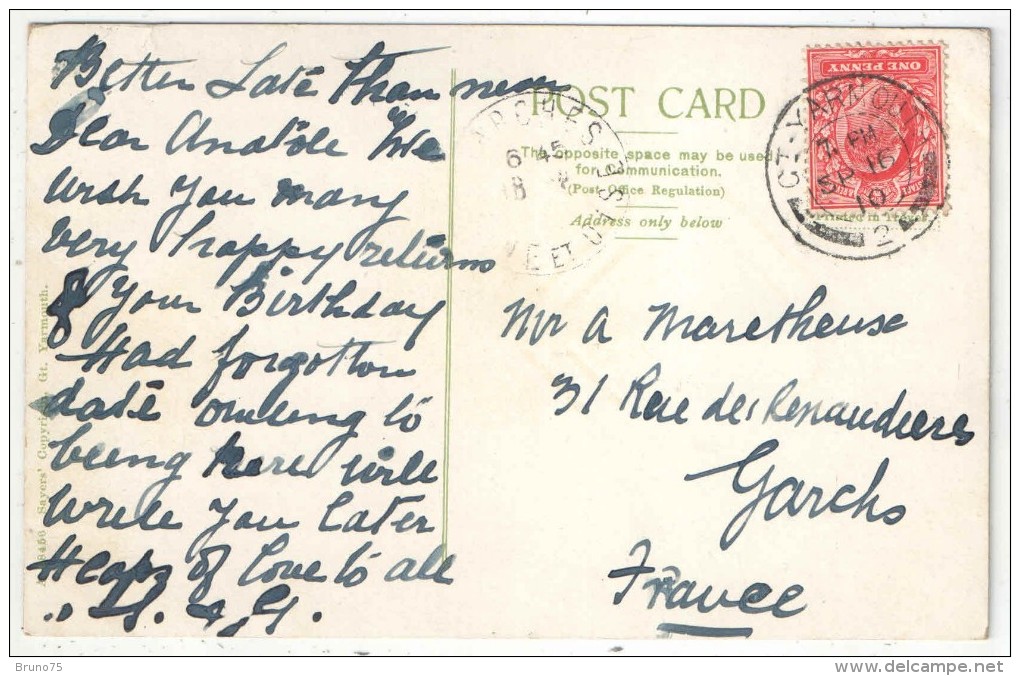 Better Late Than never
Dear Anatole We
wish you many
very happy returns
of your Birthday
Had forgotten
date oweing to
being here will
write you later
Heaps of love to all
H. & G.
POST CARD
The opposite space may be used
for communication.
(Post Office Regulation)
Address only below
ONE PENNY
GT. YARMOUTH
7 PM
16
10
2
GARCHES
6 45
18
SEINE ET OISE
Printed in
Mr A Maretheuse
31 Rue des
Garchs
France
Sayers' Copyright, Gt. Yarmouth.
Bruno75
delcampe.net